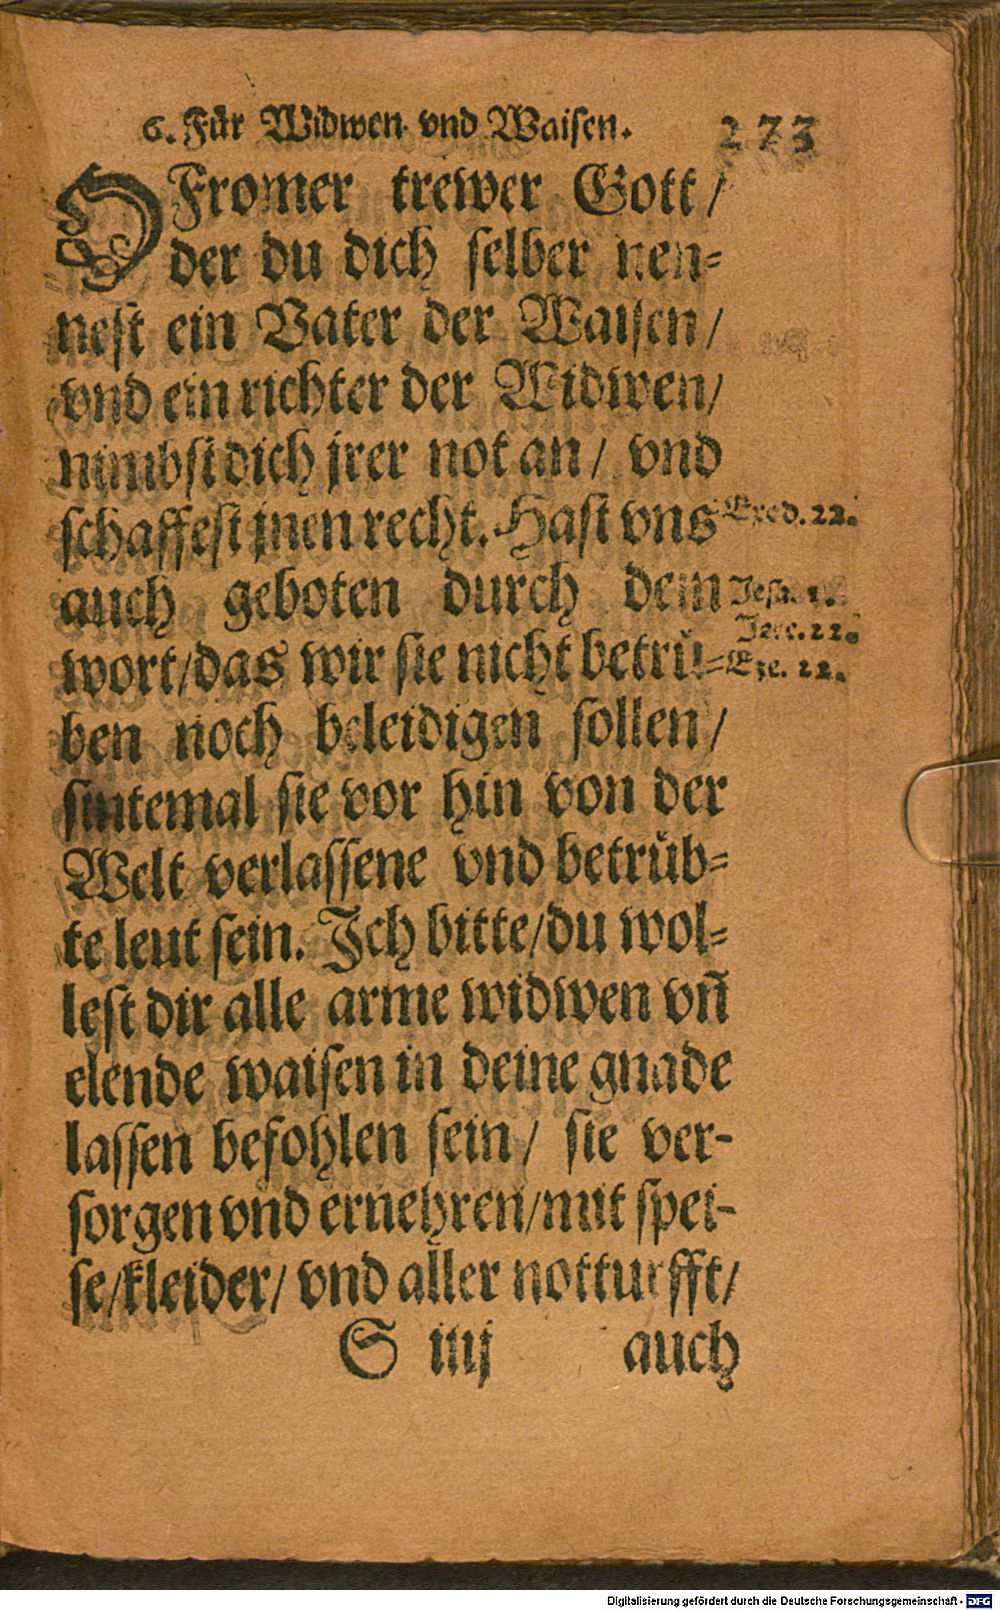 6. Für Widwen vnd Waisen. 273
O Fromer trewer Gott/
der du dich selber nen-
nest ein Vater der Waisen/
vnd ein richter der Widwen/
nimbst dich jrer not an/ vnd
schaffest jnen recht. Hast vns
Exod. 22.
auch geboten durch dein
Jesa. 1.
Jere. 22.
wort/das wir sie nicht betrü-
Eze. 22.
ben noch beleidigen sollen/
sintemal sie vor hin von der
Welt verlassene vnd betrüb-
te leut sein. Ich bitte/du wol-
lest dir alle arme widwen vñ
elende waisen in deine gnade
lassen befohlen sein/ sie ver-
sorgen vnd ernehren/mit spei-
se/kleider/ vnd aller notturfft/
S iiij auch
Digitalisierung gefördert durch die Deutsche Forschungsgemeinschaft - DFG